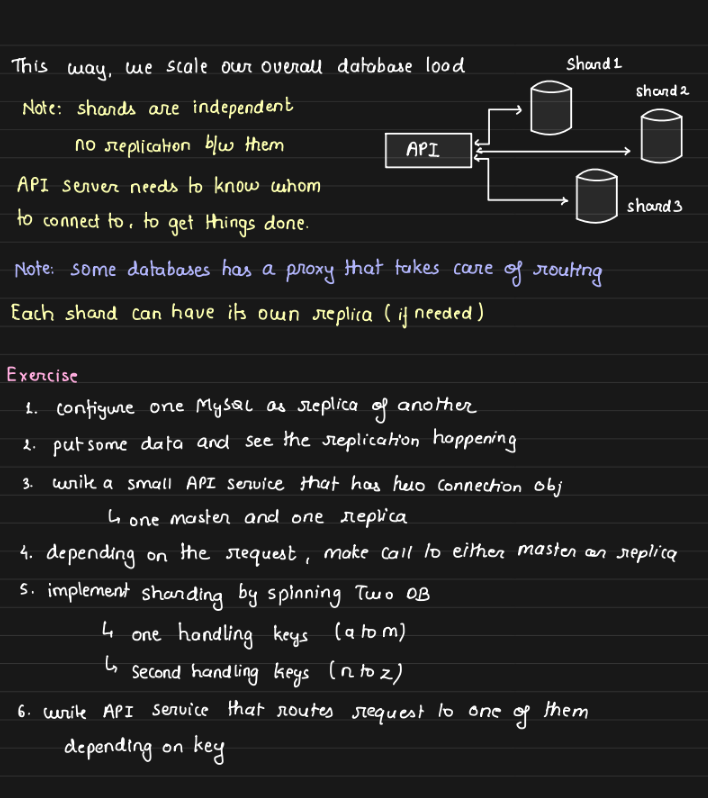 This way, we scale our overall database load
Note: shards are independent
no replication b/w them
API server needs to know whom
to connect to, to get things done.
Shard1
shard2
API
shard3
Note: some databases has a proxy that takes care of routing
Each shard can have its own replica (if needed)
Exercise
1. configure one MySQL as replica of another
2. put some data and see the replication happening
3. write a small API service that has two connection obj
↳ one master and one replica
4. depending on the request, make call to either master or replica
5. implement sharding by spinning Two DB
↳ one handling keys (a to m)
↳ second handling keys (n to z)
6. write API service that routes request to one of them
depending on key